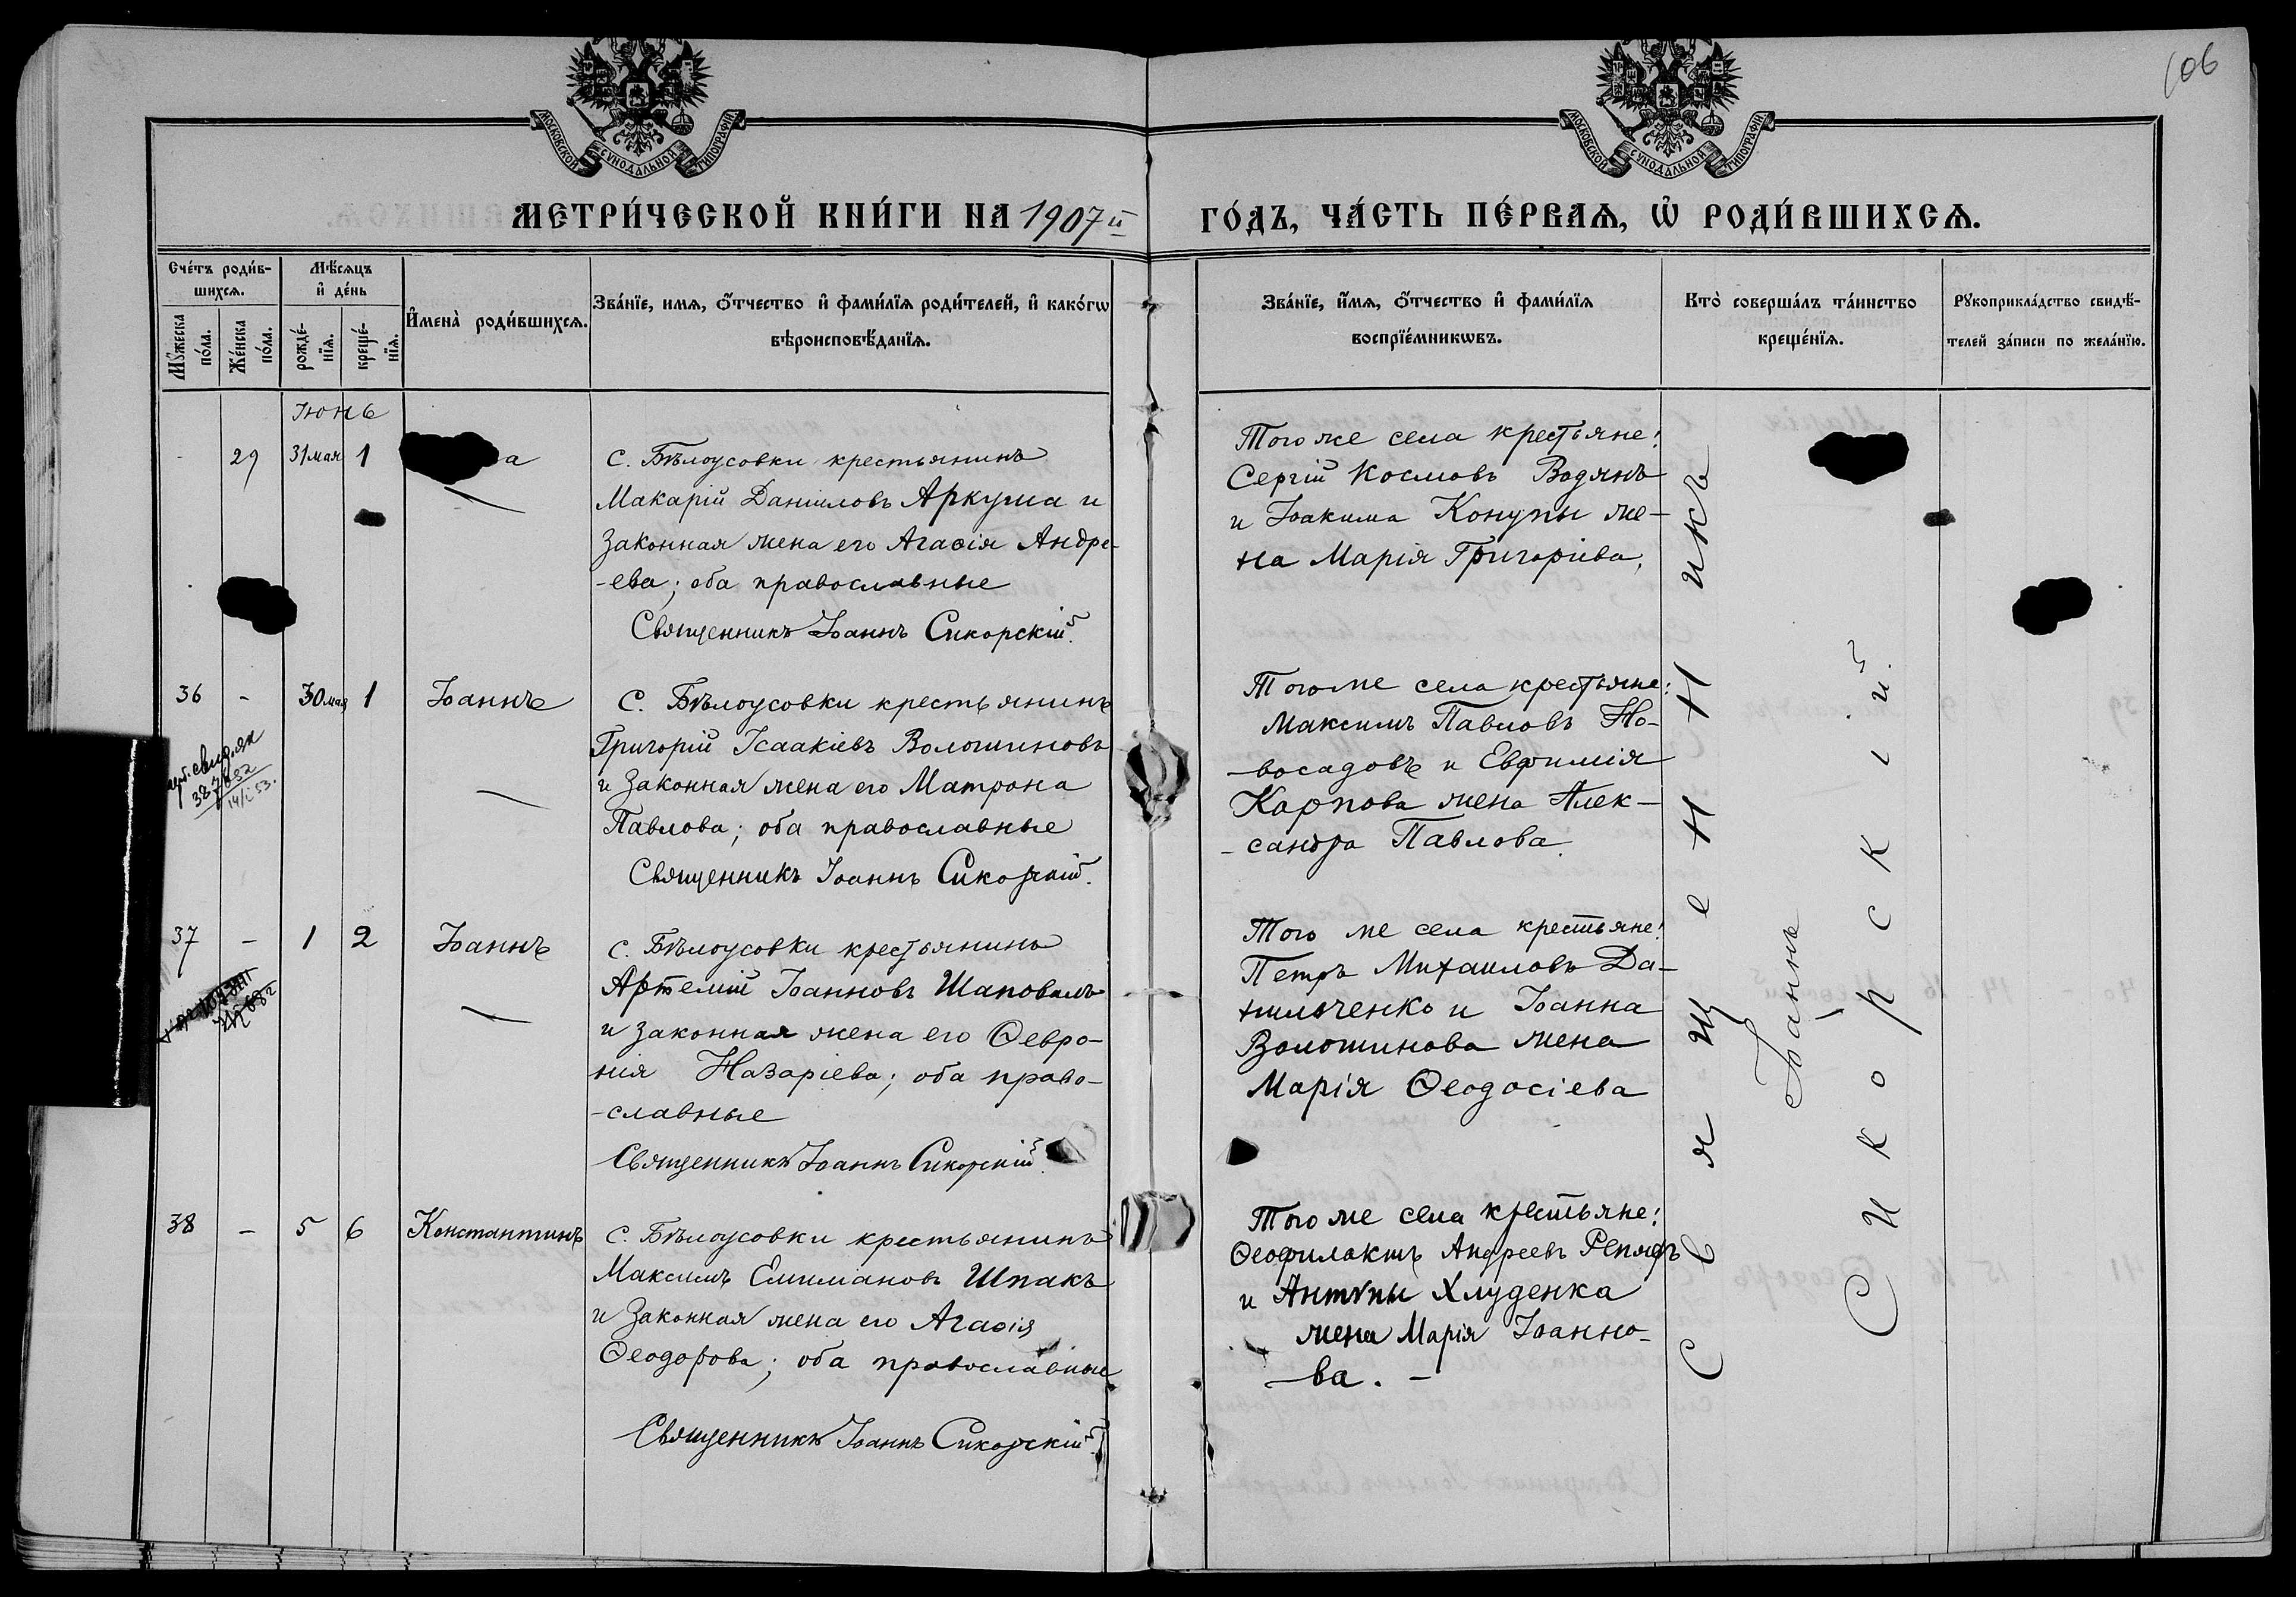 106
МОСКОВСКОЙ СѴНОДАЛЬНОЙ ТИПОГРАФІИ
МОСКОВСКОЙ СѴНОДАЛЬНОЙ ТИПОГРАФІИ
МЕТРИ́ЧЕСКОЙ КНИ́ГИ НА 1907й
ГО́ДЪ, ЧА́СТЬ ПЕ́РВАѦ, Ѽ РОДИ́ВШИХСѦ.
Сче́тъ роди́в-
шихсѧ.
Мꙋ́жеска
по́ла.
Же́нска
по́ла.
Мѣ́сѧцъ
и҆ де́нь
рожде́-
нїѧ.
креще́-
нїѧ.
И҆мена̀ роди́вшихсѧ.
Зва́нїе, имѧ, ѻ҆́тчество и҆ фами́лїѧ роди́телей, и҆ како́гѡ
вѣроисповѣ́данїѧ.
Зва́нїе, и҆́мѧ, ѻ҆́тчество и҆ фами́лїѧ
воспрїе́мникѡвъ.
Кто̀ соверша́лъ та́инство
креще́нїѧ.
Рꙋкоприкла́дство свидѣ́-
телей за́писи по жела́нїю.
Іюнь
29 31 мая 1 а
с. Бѣлоусовки крестьянинъ
Макарій Даніиловъ Аркуша и
законная жена его Агаѳія Андре-
-ева; оба православные
Священникъ Іоаннъ Сикорскій.
Того же села крестьяне:
Сергій Космовъ Водянъ
и Іоакима Конупы же-
на Марія Григоріева,
36 - 30 мая 1 Іоаннъ
38
14/I 53.
с. Бѣлоусовки крестьянинъ
Григорій Исаакіевъ Волошиновъ
и законная жена его Матрона
Павлова; оба православные
Священникъ Іоаннъ Сикорскій.
Того же села крестьяне:
Максимъ Павловъ Но-
-восадовъ и Евфимія
Карпова жена Алек-
-сандра Павлова.
37 - 1 2 Іоаннъ
с. Бѣлоусовки крестьянинъ
Артемій Іоанновъ Шаповалъ
и законная жена его Ѳевро-
нія Назаріева; оба право-
-славные
Священникъ Іоаннъ Сикорскій.
Того же села крестьяне:
Петръ Михаиловъ Да-
нильченко и Іоанна
Волошинова жена
Марія Ѳеодосіева
38 - 5 6 Константинъ
с. Бѣлоусовки крестьянинъ
Максимъ Емиліановъ Шпакъ
и законная жена его Агаѳія
Ѳеодорова; оба православные
Священникъ Іоаннъ Сикорскій
Того же села крестьяне:
Ѳеофилактъ Андреевъ Репяхъ
и Антипы Хлуденка
жена Марія Іоанно-
-ва. -
Священникъ
Іоаннъ
Сикорскій.